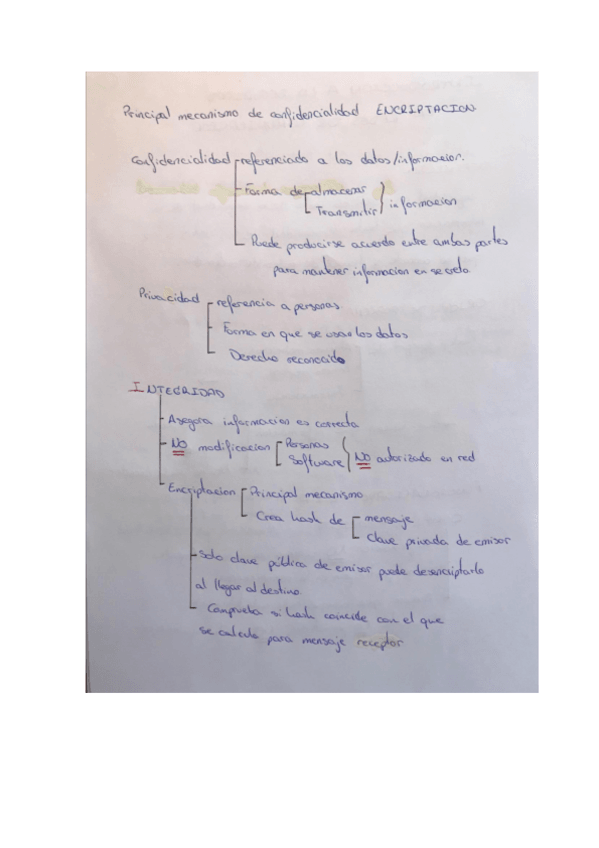 Principal mecanismo de confidencialidad ENCRIPTACION
Confidencialidad referenciado a los datos/informacion.
Forma de almacenar
Transmitir informacion
Puede producirse acuerdo entre ambas partes
para mantener informacion en secreto.
Privacidad referencia a personas.
Forma en que se usan los datos
Derecho reconocido
INTEGRIDAD
Asegura informacion es correcta
NO modificacion Personas
Software NO autorizado en red
Encriptacion Principal mecanismo
Crea hash de mensaje
Clave privada de emisor
Solo clave pública de emisor puede desencriptarlo
al llegar al destino
Comprueba si hash coincide con el que
se calcula para mensaje receptor